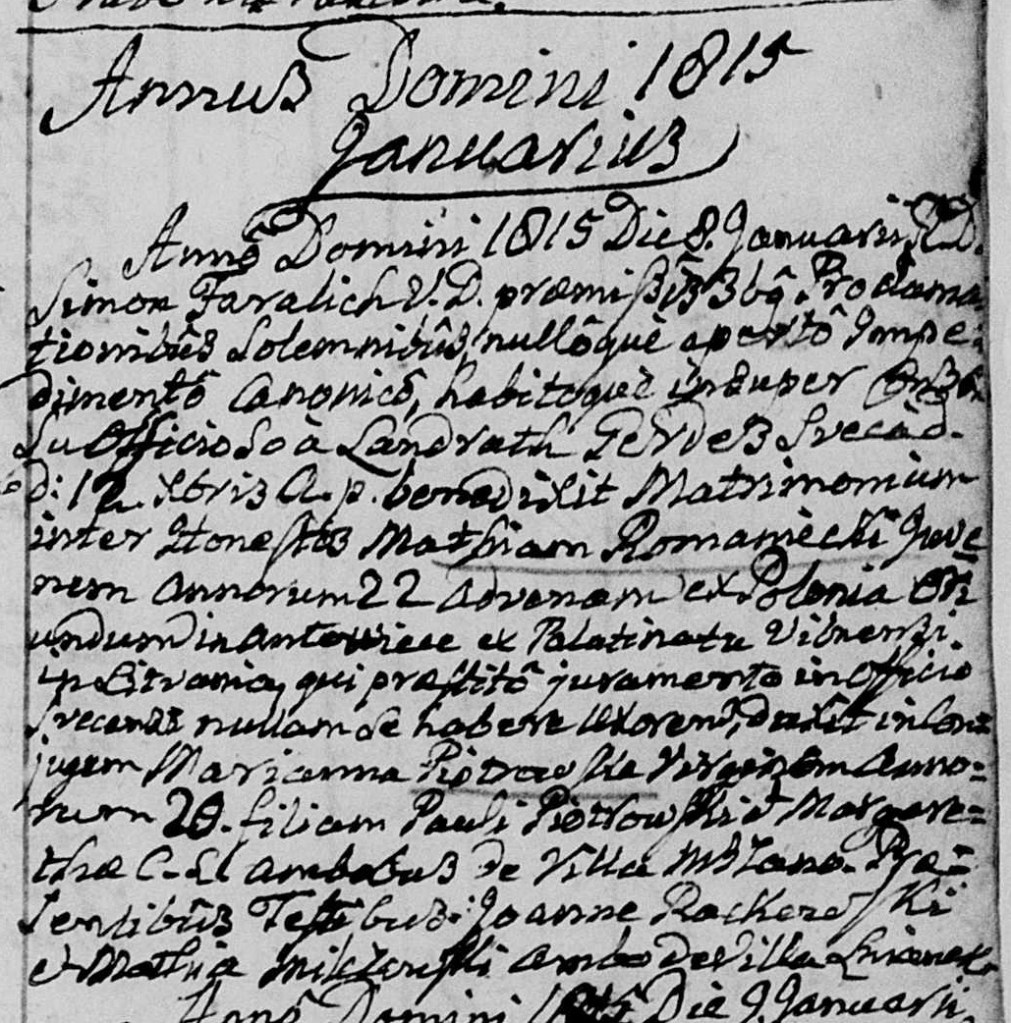 Annus Domini 1815
Januarius
Anno Domini 1815 Die 8. Januarii
Simon Faralich V. D. præmissis 3bq Proclama
tionibus Solemnibus, nullôque apertô Jmpe:
dimentô Canonicô, habitoque insuper
su Officioso à Landrath Gerdes Svec
d: 12. Xbris A. p. benedixit Matrimonium
inter Honestos Mathiam Romaniecki Juve
nem annorum 22 advenam ex Polonia Ori
undum in ex Palatinatu Vilnensi.
in Litvania, qui præstitô juramento in Officio
Svecensi nullam se habere Uxorem, duxit in Con=
jugem Marianna Piotrowska Virginem Anno=
rum 20. filiam Pauli Piotrowski et Margare=
thæ C. L ambobus de Villa Præ=
sentibus Testibus: Joanne
et Mathia ambo de Villa
Anno Domini Die 9. Januarii.